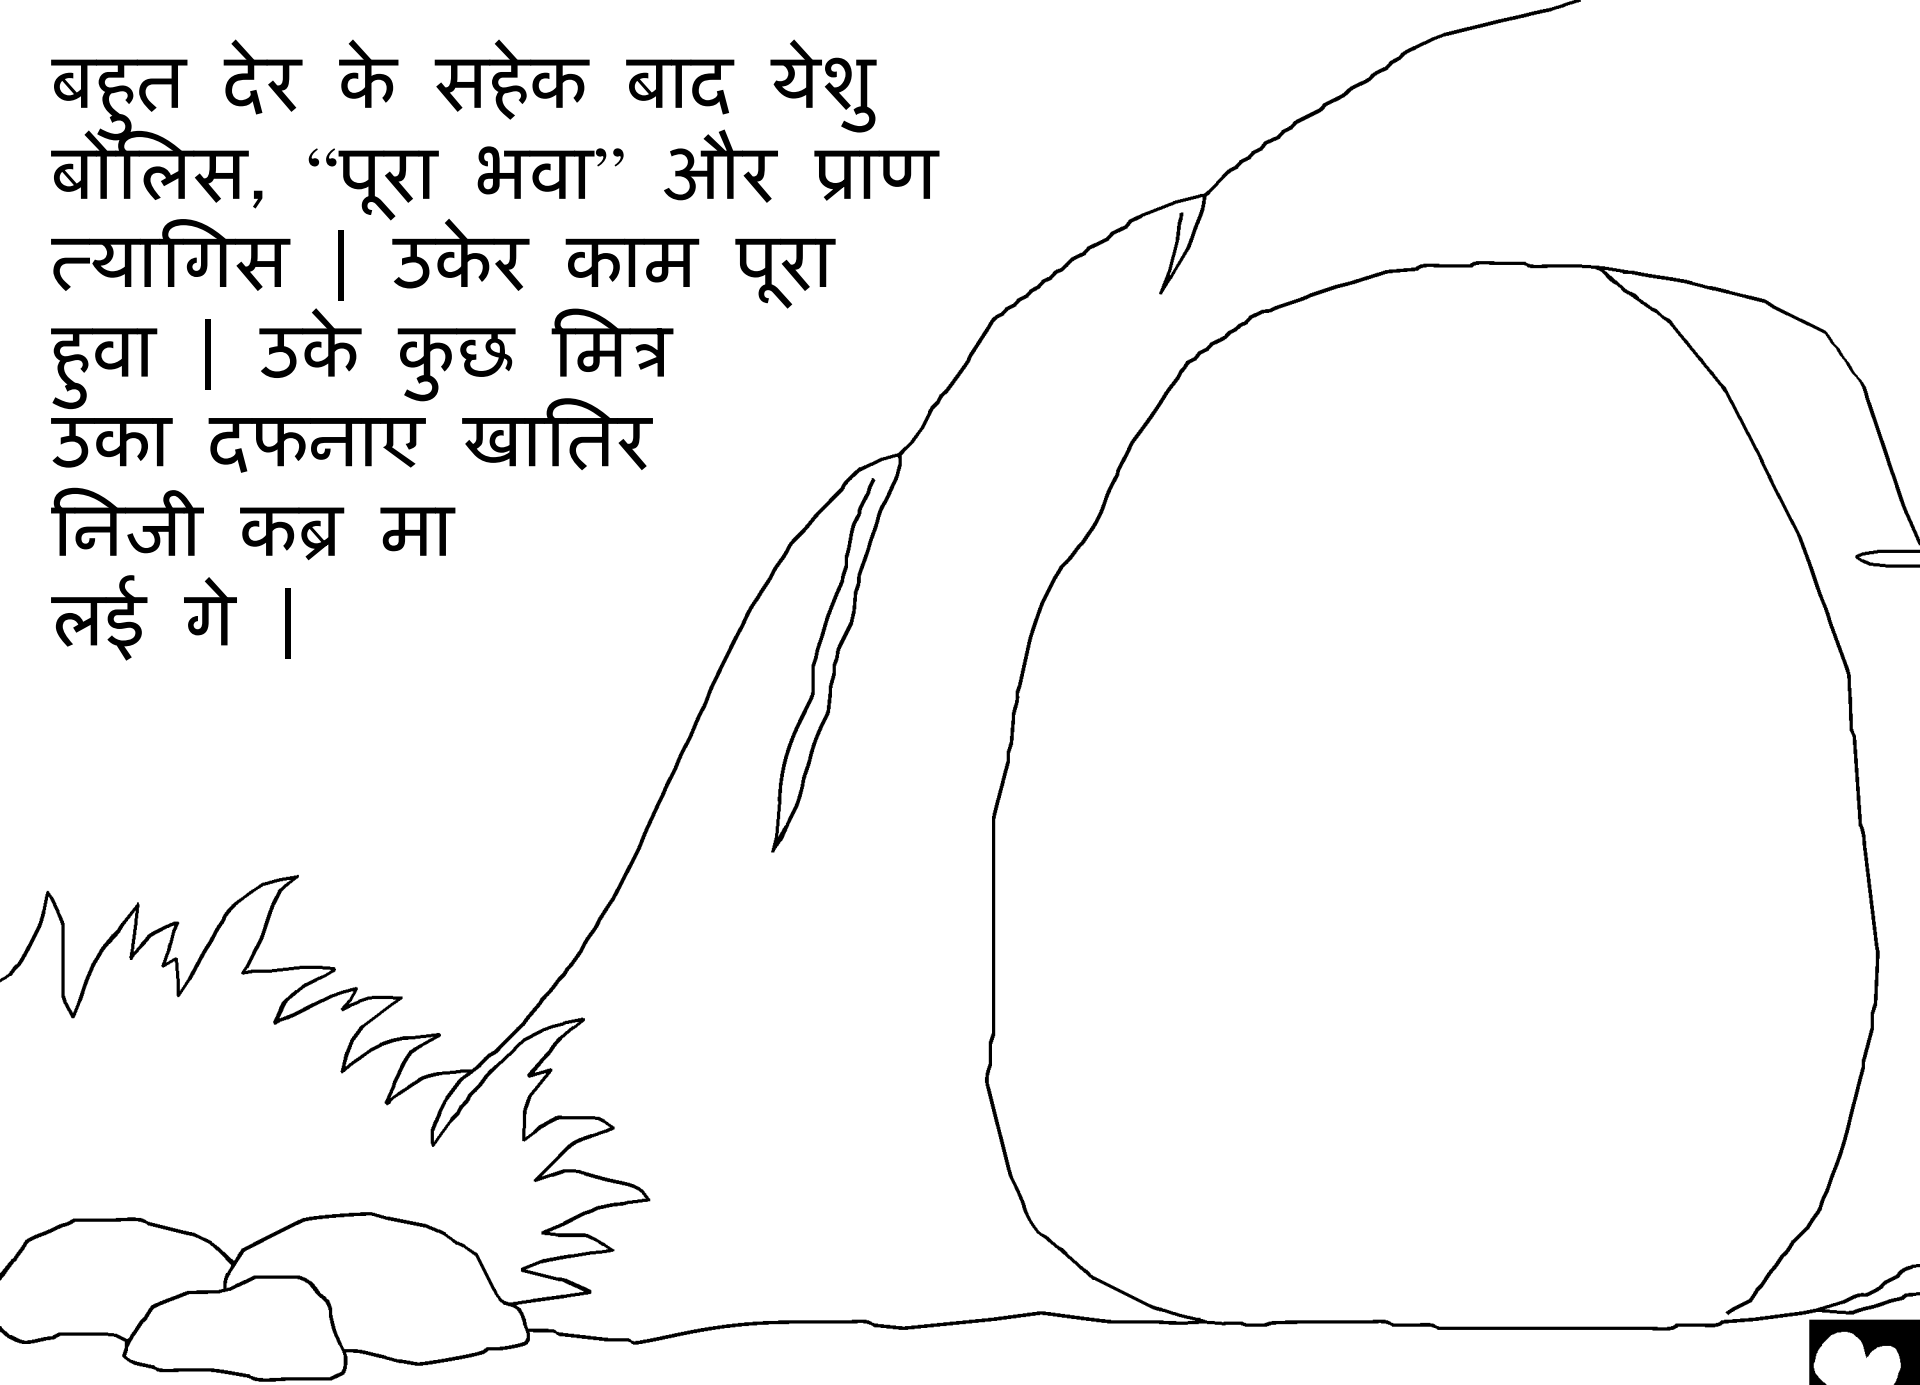 बहुत देर के सहेक बाद येशु
बोलिस, “पूरा भवा” और प्राण
त्यागिस | उकेर काम पूरा
हुवा | उके कुछ मित्र
उका दफनाए खातिर
निजी कब्र मा
लई गे |